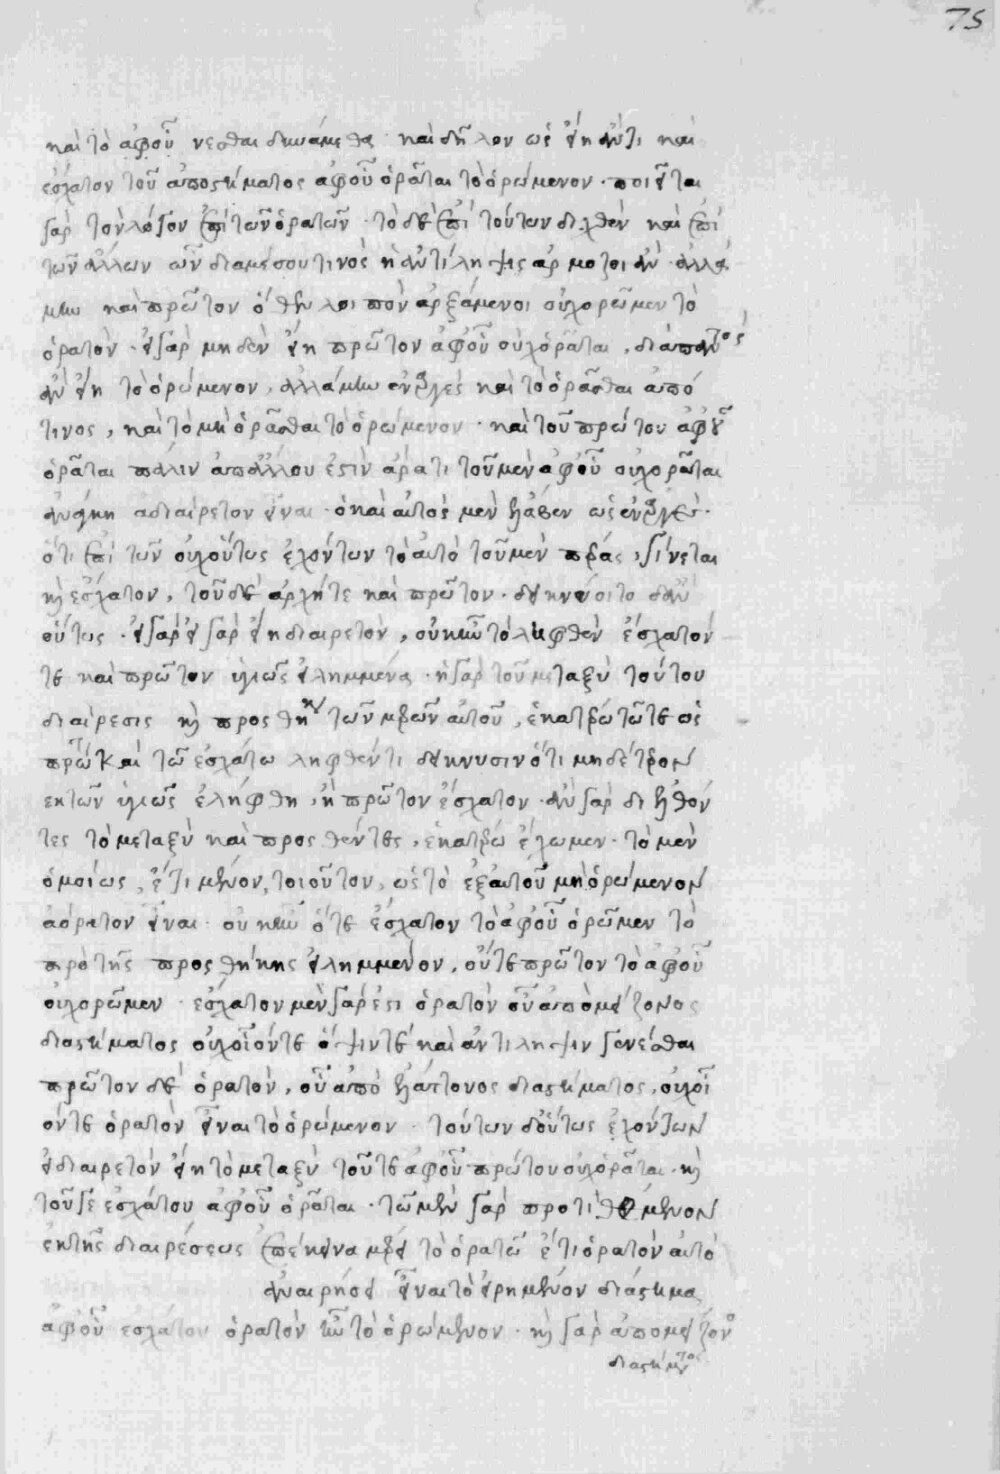 75
καὶ τὸ ἀφοῦ νεσθαι δυνάμεθα· καὶ δῆλον ὡς εἴη ἄν τι καὶ
ἔσχατον τοῦ ἀποστήματος ἀφοῦ ὁρᾶται τὸ ὁρώμενον· ποιεῖται
γὰρ τὸν λόγον ἐπὶ τῶν ὁρατῶν· τὸ δὲ ἐπὶ τούτων δειχθὲν καὶ ἐπὶ
τῶν ἄλλων ὧν διαμέσου τινὸς ἡ ἀντίληψις ἁρμόζοι ἄν· ἀλλὰ
μὴν καὶ πρῶτον ὅθεν λοιπὸν ἀρξάμενοι οὐχ ὁρῶμεν τὸ
ὁρατόν· εἰ γὰρ μηδὲν εἴη πρῶτον ἀφοῦ οὐχ ὁρᾶται, διαπαντὸς
ἂν εἴη τὸ ὁρώμενον, ἀλλὰ μὴν ἐναργὲς καὶ τὸ ὁρᾶσθαι ἀπό
τινος, καὶ τὸ μὴ ὁρᾶσθαι τὸ ὁρώμενον· καὶ τοῦ πρώτου ἀφοῦ
ὁρᾶται πάλιν ἀπ' ἄλλου ἐστὶν ἄρα τι τοῦ μὲν ἀφοῦ οὐχ ὁρᾶται
ἀνάγκη ἀδιαίρετον εἶναι· ὃ καὶ αὐτὸς μὲν ἔλαβεν ὡς ἐναργές·
ὅτι ἐπὶ τῶν οὐχ οὕτως ἐχόντων τὸ αὐτὸ τοῦ μὲν πέρας, γίνεται
καὶ ἔσχατον, τοῦ δὲ ἀρχή τε καὶ πρῶτον· δεικνύοιτο δ' ἂν
οὕτως· εἰ γὰρ εἰ γὰρ εἴη διαιρετόν, οὐκ ἦν τὸ ληφθὲν ἔσχατόν
τε καὶ πρῶτον ὑγιῶς εἰλημμένα· ἡ γὰρ τοῦ μεταξὺ τούτου
διαίρεσις καὶ προσθήκη τῶν μερῶν αὐτοῦ, ἑκατέρω τῶ τε ὡς
πρώτω καὶ τῶ ἐσχάτω ληφθέντι δείκνυσιν ὅτι μηδέτερον
ἐκ τῶν ὑγιῶς ἐλήφθη, ἢ πρῶτον ἔσχατον· ἂν γὰρ διελθόν
τες τὸ μεταξὺ καὶ προσθέντες, ἑκατέρω ἔχωμεν· τὸ μὲν
ὁμοίως, ἔτι μένον, τοιοῦτον, ὡς τὸ ἐξ αὐτοῦ μὴ ὁρώμενον
ἀόρατον εἶναι· οὐκ ἦν ὅτε ἔσχατον τὸ ἀφοῦ ὁρῶμεν τὸ
πρὸ τῆς προσθήκης εἰλημμένον, οὔτε πρῶτον τὸ ἀφοῦ
οὐχ ὁρῶμεν· ἔσχατον μὲν γάρ ἐστι ὁρατὸν οὗ ἀπὸ μείζονος
διαστήματος οὐχ οἷόν τε ὄψιν τε καὶ ἀντίληψιν γενέσθαι
πρῶτον δὲ ὁρατόν, οὗ ἀπὸ ἐλάττονος διαστήματος, οὐχ οἷ
όν τε ὁρατὸν εἶναι τὸ ὁρώμενον· τούτων δ' οὕτως ἐχόντων
εἰ διαιρετὸν εἴη τὸ μεταξὺ τοῦ τε ἀφοῦ πρώτου οὐχ ὁρᾶται· καὶ
τοῦ γε ἐσχάτου ἀφοῦ ὁρᾶται· τῶ μὲν γὰρ προτιθέμενον
ἐκ τῆς διαιρέσεως ἐπέκεινα μέρει τὸ ὁρατῶ ἔτι ὁρατὸν αὐτὸ
ἀναιρήσει εἶναι τὸ εἰρημένον διάστημα
ἀφοῦ ἔσχατον ὁρατὸν ἦν τὸ ὁρώμενον· καὶ γὰρ ἀπὸ μείζονο
διαστήματος